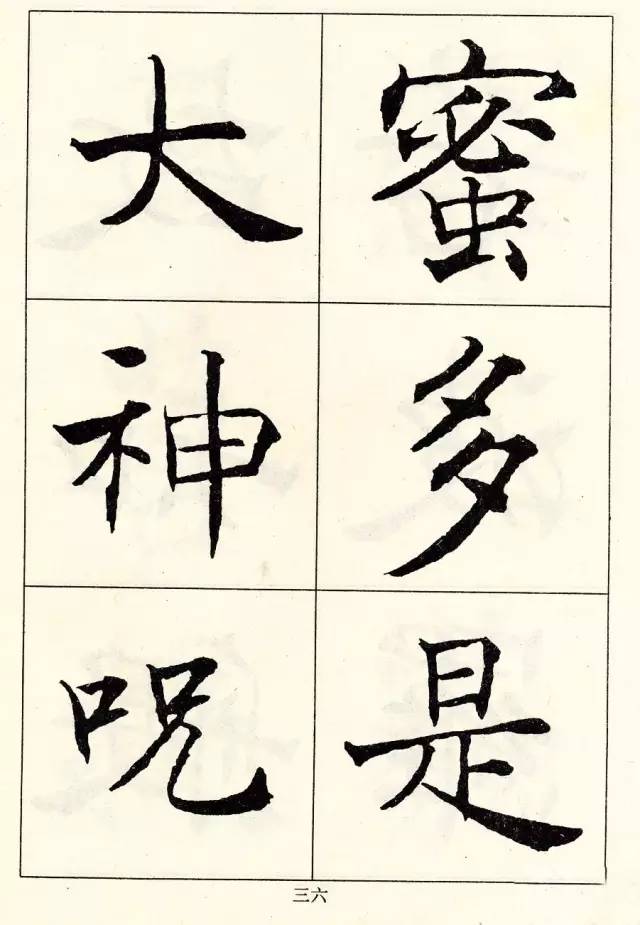 蜜多是
大神呪
三六